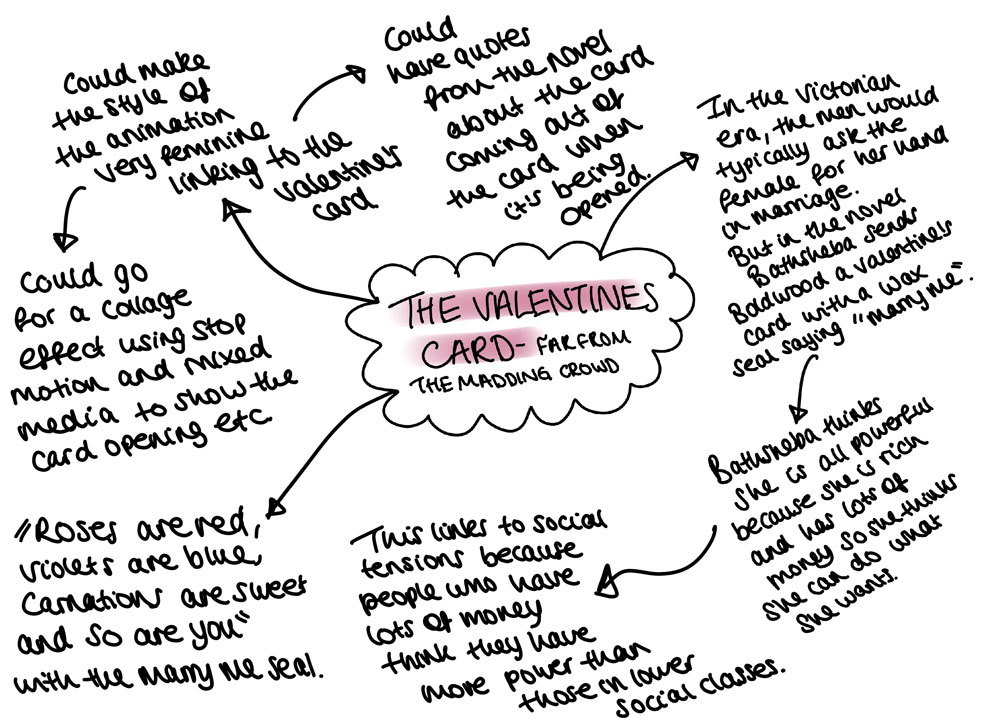 THE VALENTINES
CARD- FAR FROM
THE MADDING CROWD
Could make
the style of
the animation
very feminine
linking to the
valentine's
card
Could
have quotes
from the novel
about the card
coming out of
the card when
it's being
opened.
Could go
for a collage
effect using stop
motion and mixed
media to show the
card opening etc.
"Roses are red,
violets are blue,
Carnations are sweet
and so are you"
with the marry me seal.
In the Victorian
era, the men would
typically ask the
female for her hand
in marriage.
But in the novel
Bathsheba sends
Boldwood a valentine's
card with a wax
seal saying "marry me".
Bathsheba thinks
she is all powerful
because she is rich
and has lots of
money so she thinks
she can do what
she wants.
This links to social
tensions because
people who have
lots of money
think they have
more power than
those in lower
social classes.